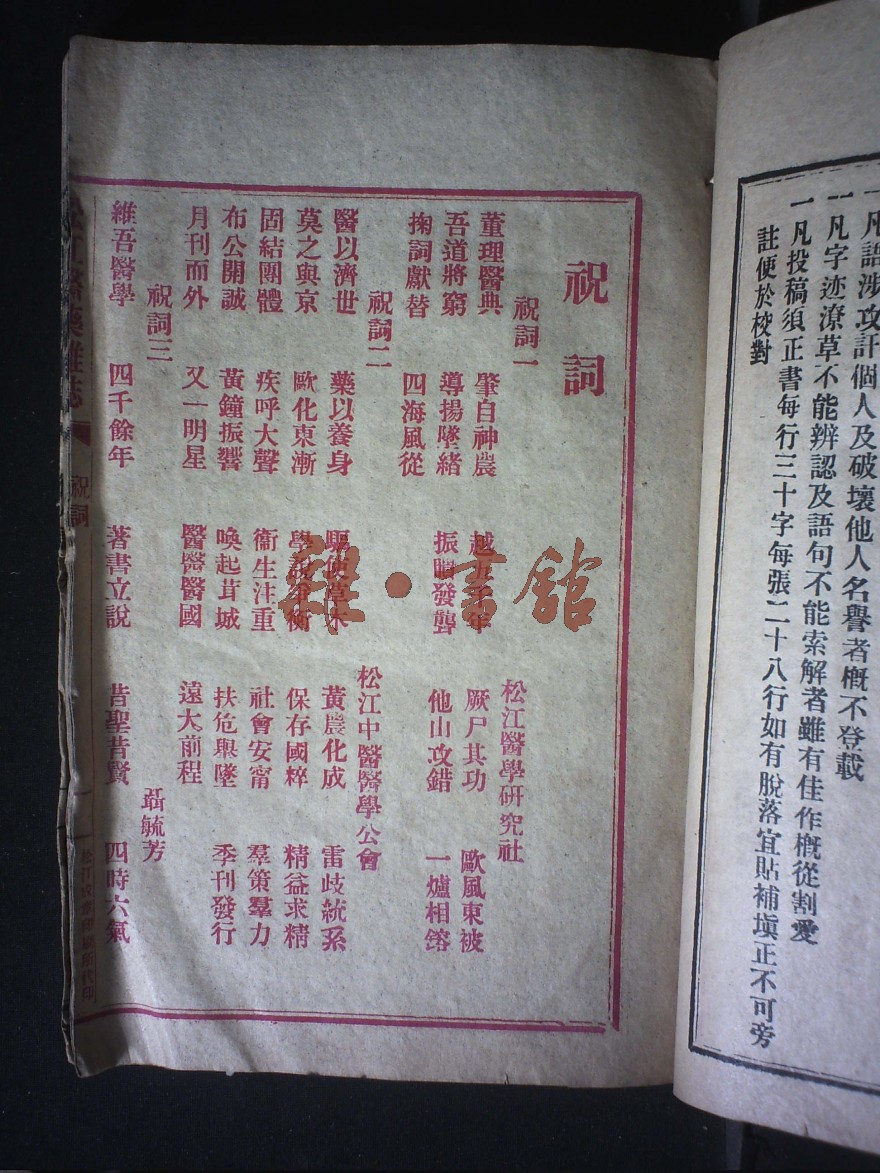 一凡語涉攻訐個人及破壞他人名譽者概不登載
一凡字迹潦草不能辨認及語句不能索解者雖有佳作概從割愛
一凡投稿須正書每行三十字每張二十八行如有脫落宜貼補塡正不可旁
註便於校對
祝詞
祝詞一
松江醫學研究社
董理醫典 肇自神農 越五千年 厥尸其功 歐風東被
吾道將窮 導揚墜緒 振聵發聾 他山攻錯 一爐相鎔
掬詞獻替 四海風從
祝詞二
松江中醫醫學公會
醫以濟世 藥以養身 驅使草木 黃農化成 雷歧統系
莫之與京 歐化東漸 學說爭衡 保存國粹 精益求精
固結團體 疾呼大聲 衞生注重 社會安甯 羣策羣力
布公開誠 黃鐘振響 喚起茸城 扶危舉墜 季刊發行
月刊而外 又一明星 醫醫醫國 遠大前程
祝詞三
聶毓芳
維吾醫學 四千餘年 著書立說 昔聖昔賢 四時六氣
松江醫藥雜誌
祝詞
一
雜·書館